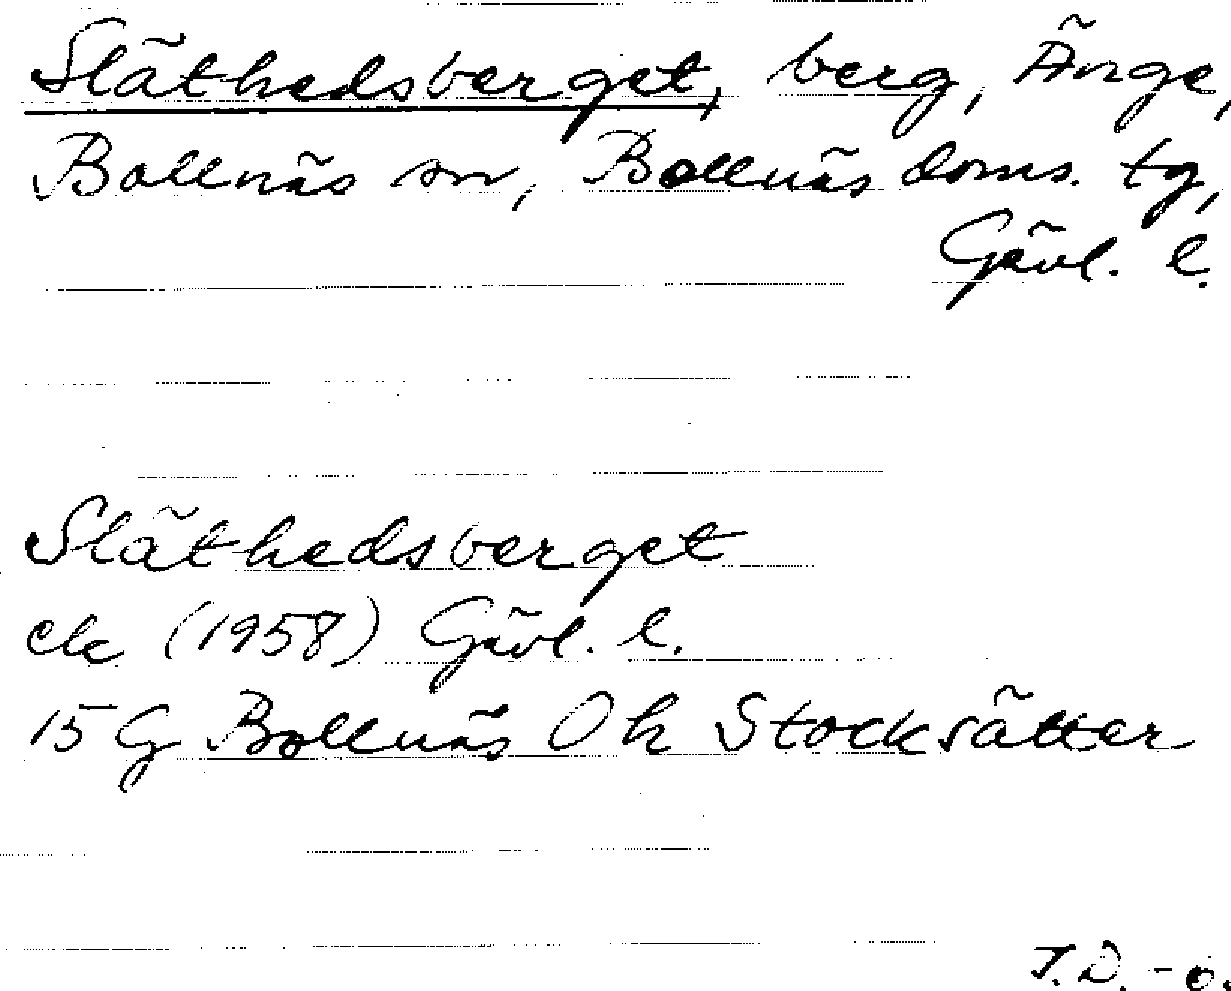 Släthedsberget, berg, Änge,
Bollnäs sn, Bollnäs doms. tg,
Gävl. l.
Släthedsberget
ek (1958) Gävl. l.
15 G Bollnäs 0 h Stocksätter
T.D. -